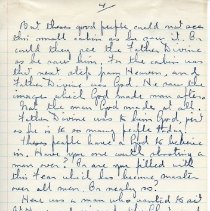 4
But these good people could not see
this small cabin as he saw it. Or
could they see the Father Divine
as he saw him. For the cabin was
the next step from Heaven, and
Father Divine was God. He saw the
image which God made man after
Not the man God made at all.
Father Divine was to him God, just
as he is to so many people today.
These people have a God to believe
in. Have you one worth shooting a
man over? Or are you filled with
this fear which has become master
over all men. Or nearly so.
Here was a man who wanted to act